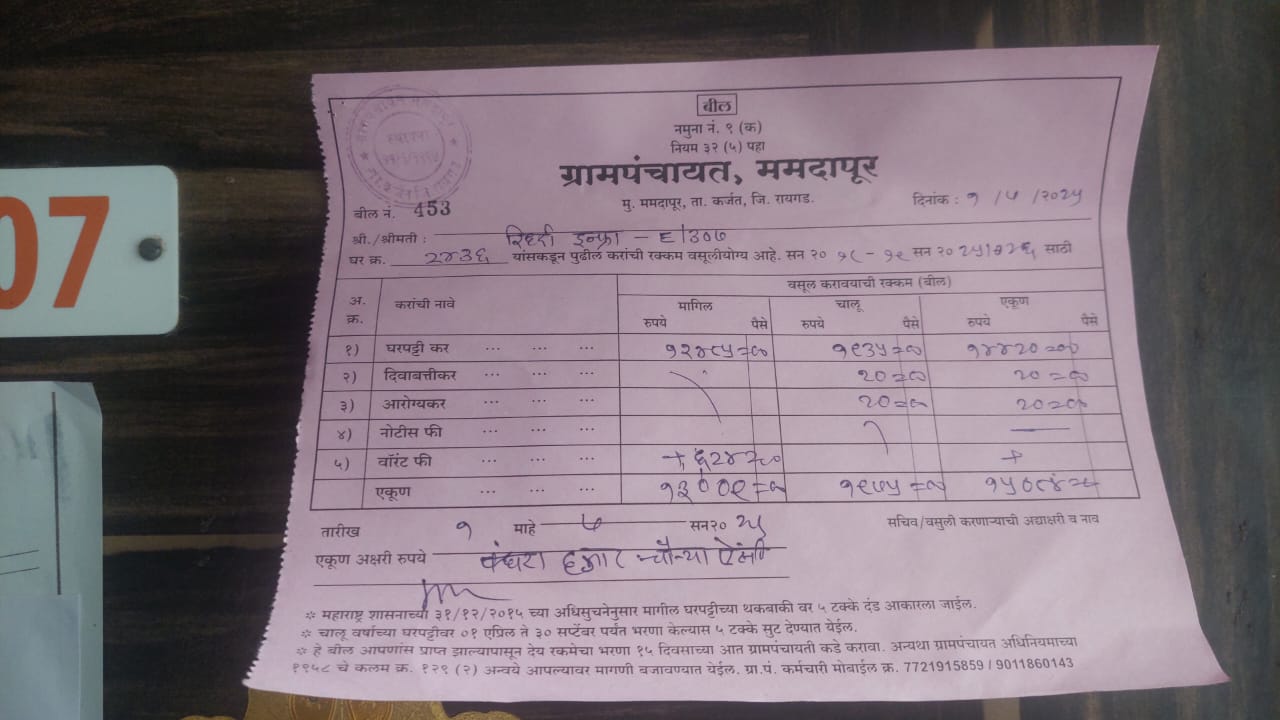 07
बील
नमुना नं. ९ (क)
नियम ३२ (५) पहा
ग्रामपंचायत, ममदापूर
मु. ममदापूर, ता. कर्जत, जि. रायगड.
बील नं. 453 दिनांक : १ / ५ /२०२५
श्री./श्रीमती : रिध्दी इन्फ्रा - E/३०७
घर क्र. २४३६ यांसकडून पुढील करांची रक्कम वसूलीयोग्य आहे. सन २० १८ - १९ सन २० २५/२६ साठी
अ. क्र. करांची नावे वसूल करावयाची रक्कम (बील)
मागिल चालू एकूण
रुपये पैसे रुपये पैसे रुपये पैसे
१) घरपट्टी कर ... ... ... १२४८५=०० १९३५=०० १४४२०=००
२) दिवाबत्तीकर ... ... ... २०=०० २०=००
३) आरोग्यकर ... ... ... २०=०० २०=००
४) नोटीस फी ... ... ...
५) वॉरंट फी ... ... ... + ६२४=००
एकूण ... ... ... १९७५=००
तारीख १ माहे सन२० २५ सचिव/वसुली करणाऱ्याची अद्याक्षरी व नाव
एकूण अक्षरी रुपये पंधरा हजार चौऱ्या ऐंशी
※ महाराष्ट्र शासनाच्या ३१/१२/२०१५ च्या अधिसुचनेनुसार मागील घरपट्टीच्या थकबाकी वर ५ टक्के दंड आकारला जाईल.
※ चालू वर्षाच्या घरपट्टीवर ०१ एप्रिल ते ३० सप्टेंबर पर्यंत भरणा केल्यास ५ टक्के सुट देण्यात येईल.
※ हे बील आपणांस प्राप्त झाल्यापासून देय रकमेचा भरणा १५ दिवसाच्या आत ग्रामपंचायती कडे करावा. अन्यथा ग्रामपंचायत अधिनियमाच्या
१९५८ चे कलम क्र. १२९ (२) अन्वये आपल्यावर मागणी बजावण्यात येईल. ग्रा.पं. कर्मचारी मोबाईल क्र. 7721915859 / 9011860143